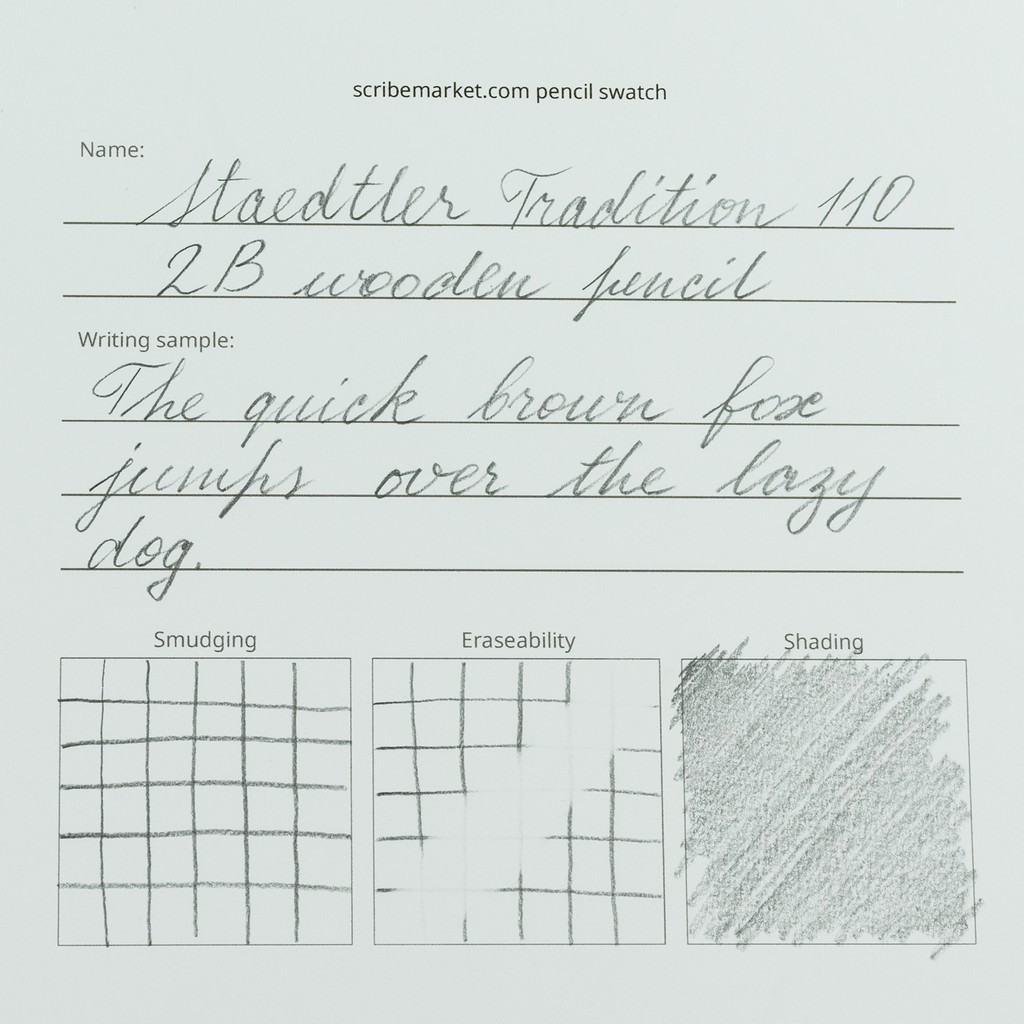 scribemarket.com pencil swatch
Name:
Staedtler Tradition 110
2B wooden pencil
Writing sample:
The quick brown fox
jumps over the lazy
dog.
Smudging Eraseability Shading